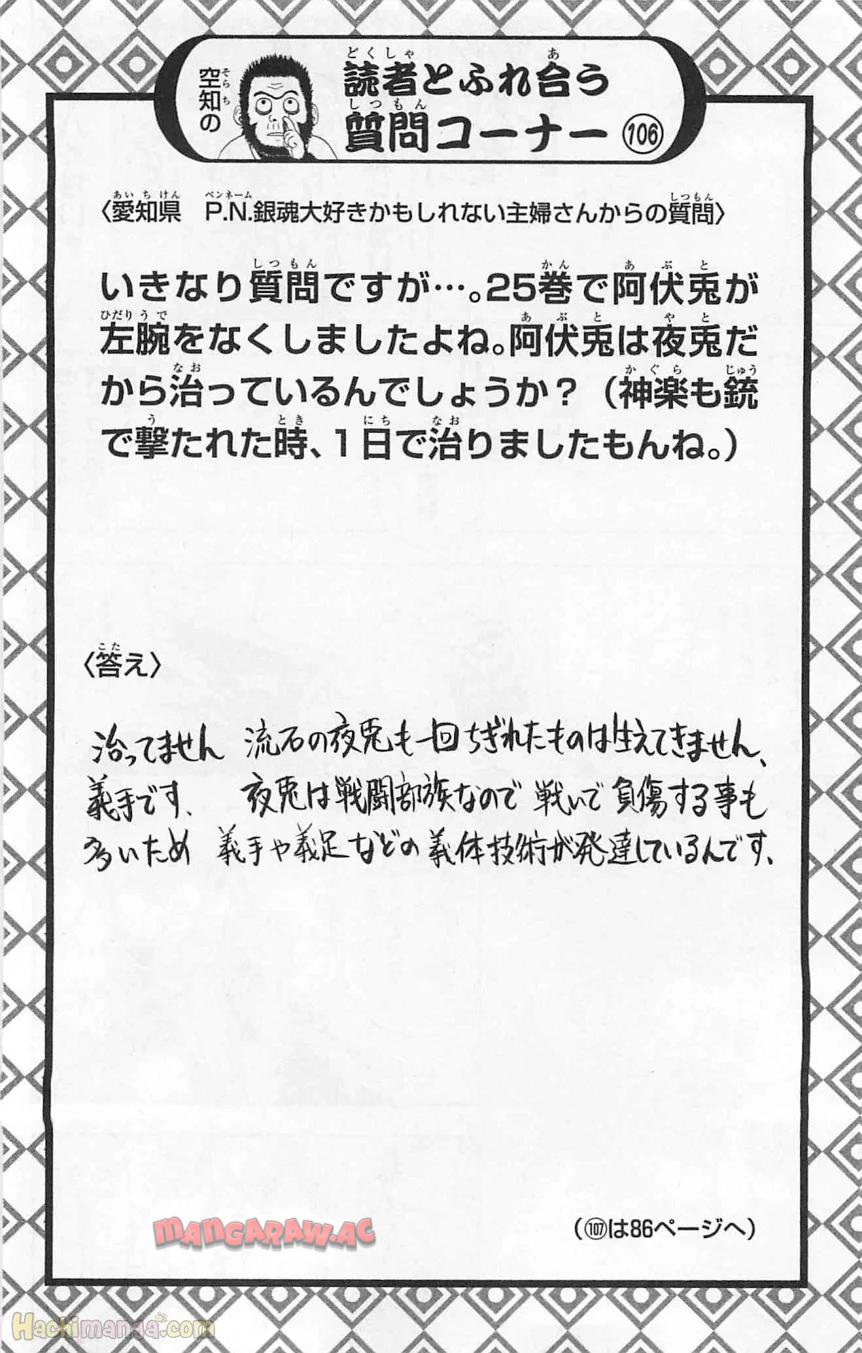 空知の
読者とふれ合う
質問コーナー 106
〈愛知県　P.N.銀魂大好きかもしれない主婦さんからの質問〉
いきなり質問ですが…。25巻で阿伏兎が
左腕をなくしましたよね。阿伏兎は夜兎だ
から治っているんでしょうか？（神楽も銃
で撃たれた時、１日で治りましたもんね。）
〈答え〉
治ってません　流石の夜兎も一回ちぎれたものは生えてきません、
義手です、　夜兎は戦闘部族なので　戦いで負傷する事も
多いため　義手や義足などの義体技術が発達しているんです、
（107は86ページへ）
MANGARAW.AC
Hachimanga.com